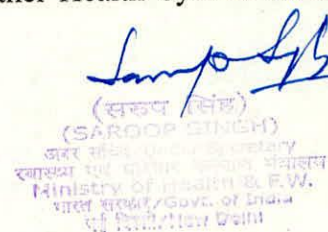 Health
(सरूप सिंह)
(SAROOP SINGH)
अवर सचिव/Under Secretary
स्वास्थ्य एवं परिवार कल्याण मंत्रालय
Ministry of Health & F.W.
भारत सरकार/Govt. of India
नई दिल्ली/New Delhi